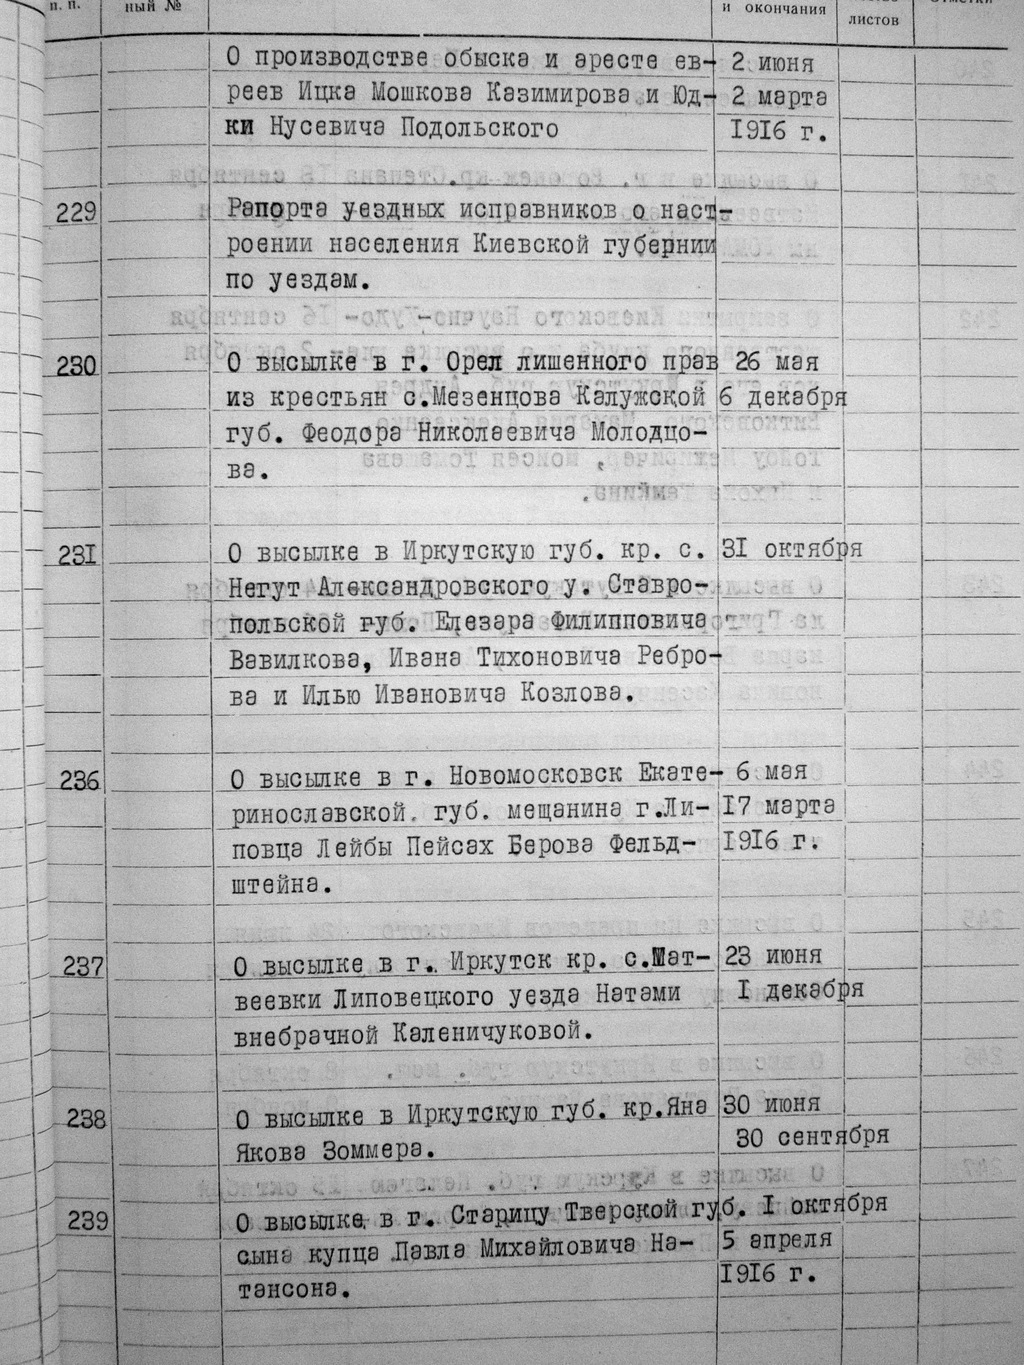 п. п. ный № и окончания листов
О производстве обыска и аресте ев- 2 июня
реев Ицка Мошкова Казимирова и Юд- 2 марта
ки Нусевича Подольского 1916 г.
229 Рапорта уездных исправников о наст-
роении населения Киевской губернии
по уездам.
230 О высылке в г. Орел лишенного прав 26 мая
из крестьян с.Мезенцова Калужской 6 декабря
губ. Феодора Николаевича Молодцо-
ва.
231 О высылке в Иркутскую губ. кр. с. 31 октября
Негут Александровского у. Ставро-
польской губ. Елезара Филипповича
Вавилкова, Ивана Тихоновича Ребро-
ва и Илью Ивановича Козлова.
236 О высылке в г. Новомосковск Екате- 6 мая
ринославской. губ. мещанина г.Ли- 17 марта
повца Лейбы Пейсах Берова Фельд- 1916 г.
штейна.
237 О высылке в г. Иркутск кр. с.Мат- 23 июня
веевки Липовецкого уезда Натами 1 декабря
внебрачной Каленичуковой.
238 О высылке в Иркутскую губ. кр.Яна 30 июня
Якова Зоммера. 30 сентября
239 О высылке в г. Старицу Тверской губ. 1 октября
сына купца Павла Михайловича На- 5 апреля
тансона. 1916 г.